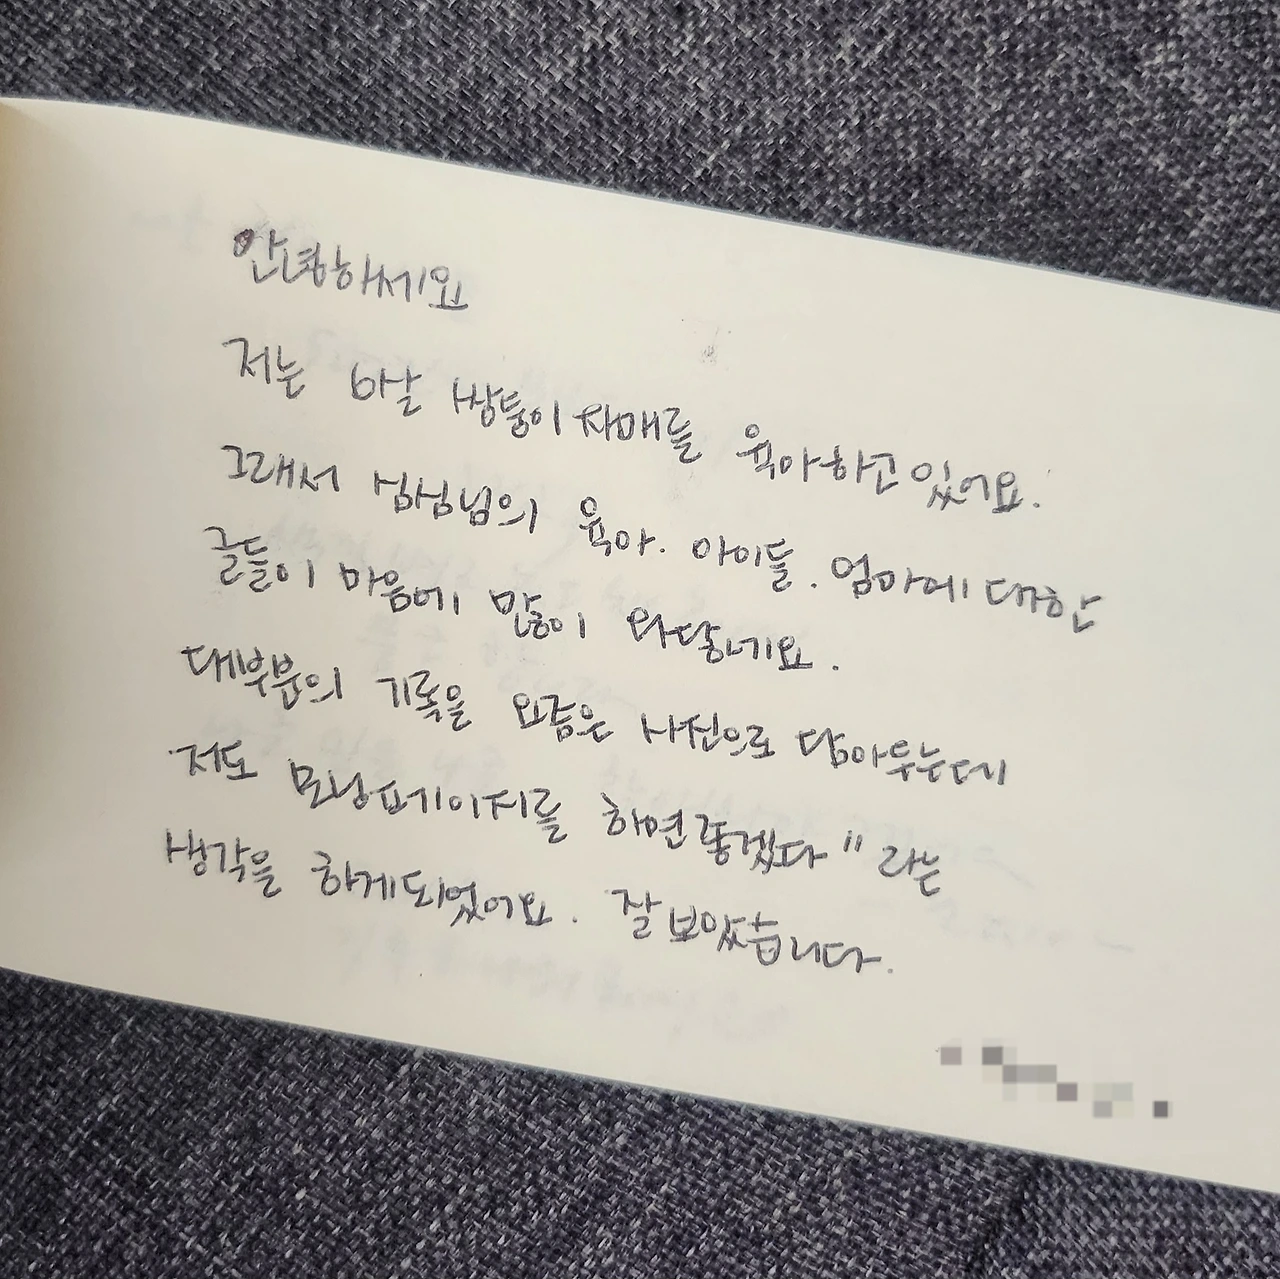 안녕하세요
저는 6살 쌍둥이자매를 육아하고있어요.
그래서 심심님의 육아. 아이들. 엄마에 대한
글들이 마음에 많이 와닿네요.
대부분의 기록을 요즘은 사진으로 담아두는데
저도 모닝페이지를 하면좋겠다" 라는
생각을 하게되었어요. 잘보았습니다.